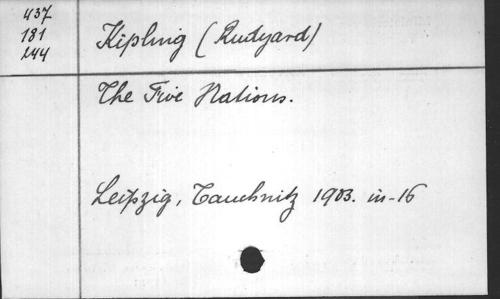 437
181
244
Kipling (Rudyard)
The Five Nations.
Leipzig, Tauchnitz 1903. in-16